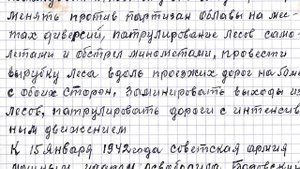 менять против партизан облавы на ме-
тах диверсий, патрулирование лесов само-
летами и обстрел минометами, провести
вырубку леса вдоль проезжих дорог на 60м
с обоих сторон, заминировать выходы из
лесов, патрулировать дороги с интенсив-
ным движением
К 15 января 1942 года советская армия
мощным ударом освободила